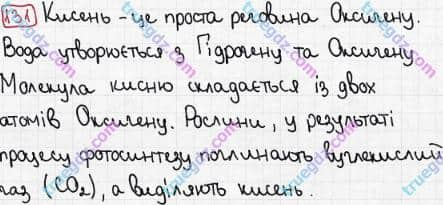 131 Кисень – це проста речовина Оксигену.
Вода утворюється з Гідрогену та Оксигену
Молекула кисню складається із двох
атомів Оксигену. Рослини, у результаті
процесу фотосинтезу поглинають вуглекислий
газ (CO₂), а виділяють кисень.
truegdz.com